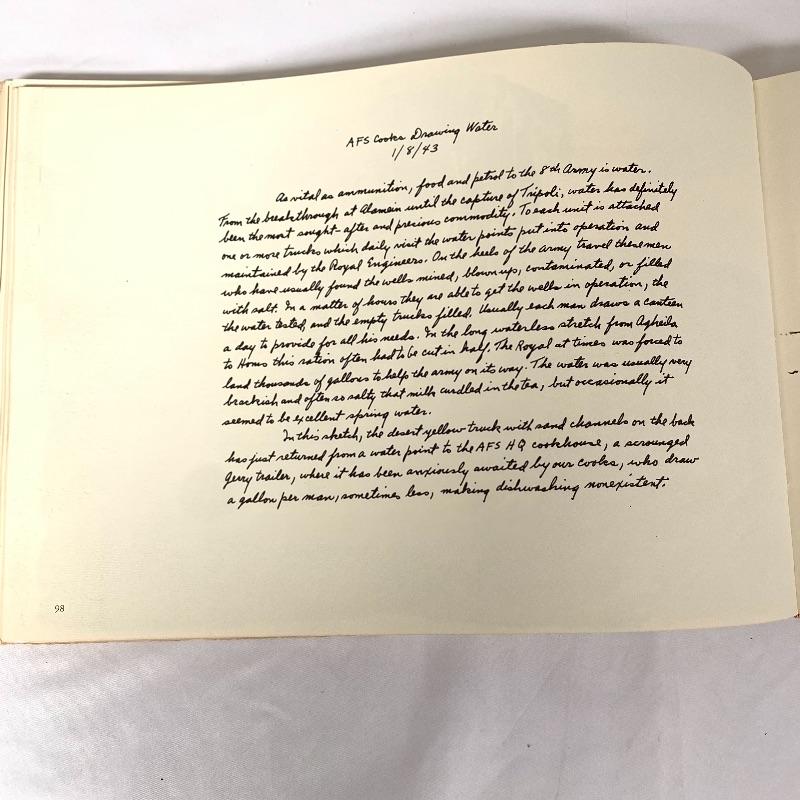 AFS Cooks Drawing Water
1/8/43
As vital as ammunition, food and petrol to the 8th Army is water.
From the breakthrough at Alamein until the capture of Tripoli, water has definitely
been the most sought-after and precious commodity. To each unit is attached
one or more trucks which daily visit the water points put into operation and
maintained by the Royal Engineers. On the heels of the army travel these men
who have usually found the wells mined, blown up, contaminated, or filled
with salt. In a matter of hours they are able to get the wells in operation, the
the water tested, and the empty trucks filled. Usually each man draws a canteen
a day to provide for all his needs. In the long waterless stretch from Agheila
to Homs this ration often had to be cut in half. The Royal at times was forced to
land thousands of gallons to help the army on its way. The water was usually very
brackish and often so salty that milk curdled in the tea, but occasionally it
seemed to be excellent spring water.
In this sketch, the desert yellow truck with sand channels on the back
has just returned from a water point to the AFS HQ cookhouse, a scrounged
Jerry trailer, where it has been anxiously awaited by our cooks, who draw
a gallon per man, sometimes less, making dishwashing nonexistent.
98